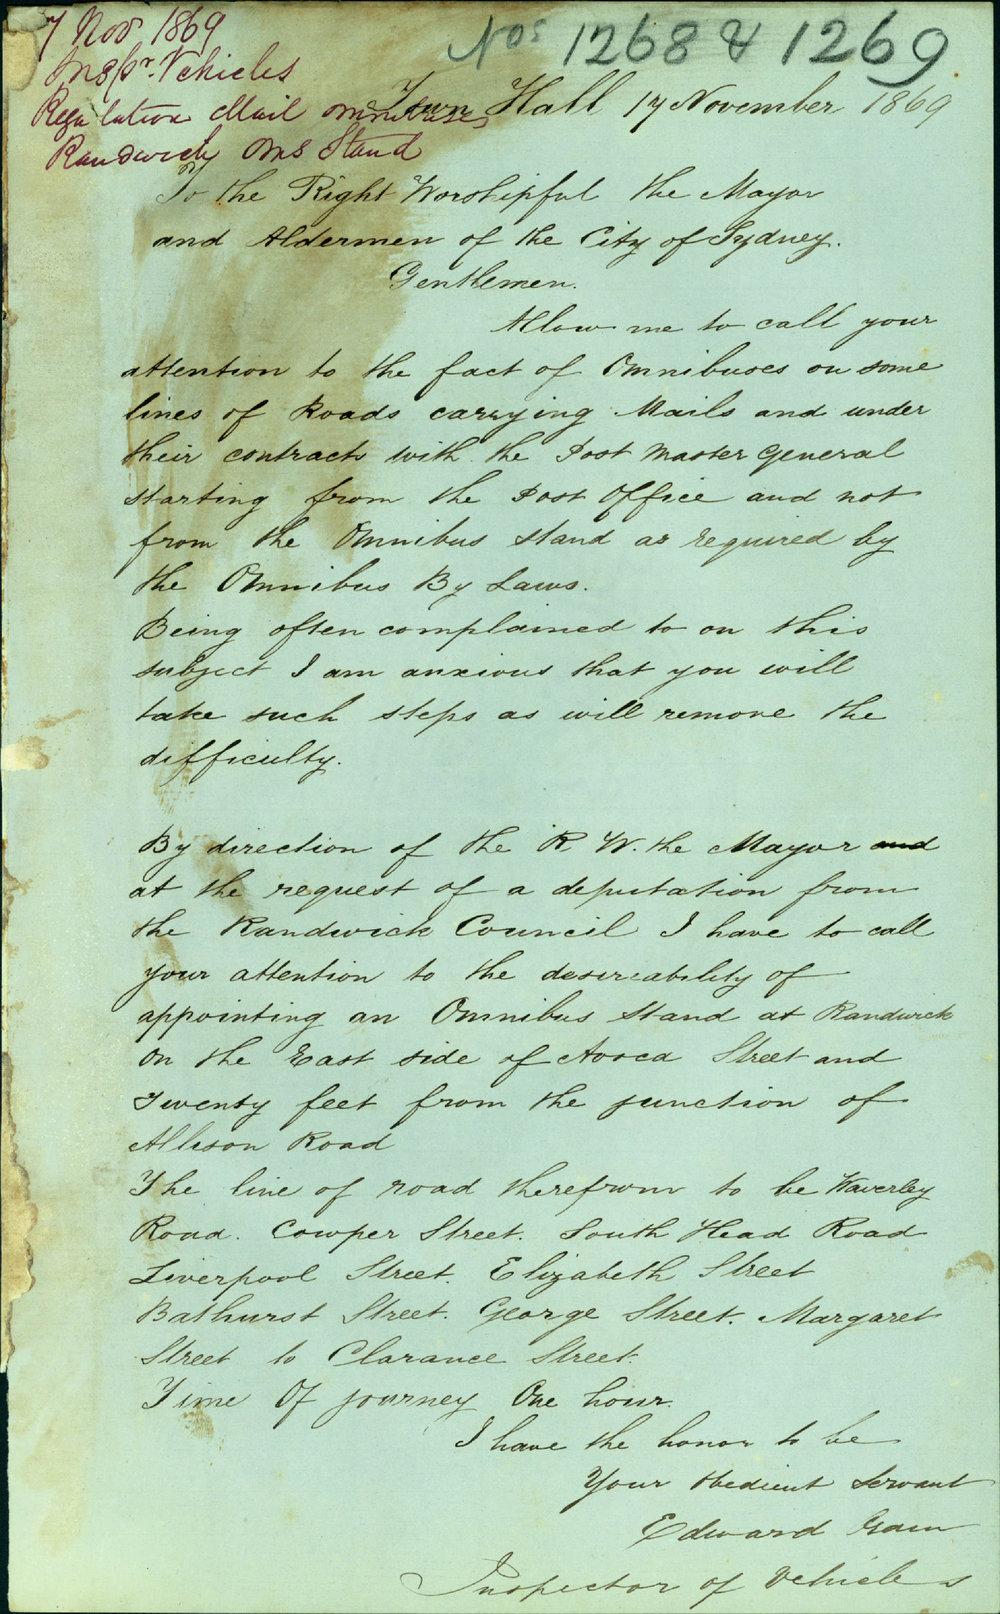 7 Nov 1869
Nos 1268 & 1269
Inspr. Vehicles
Town Hall 17 November 1869
Regulation Mail Omnibuses
Randwick Ms Stand
To the Right Worshipful the Mayor
and Aldermen of the City of Sydney.
Gentlemen.
Allow me to call your
attention to the fact of Omnibuses on some
lines of Roads carrying Mails and under
their contract with the Post Master General
starting from the Post Office and not
from the Omnibus Stand as required by
the Omnibus By Laws.
Being often complained to on this
subject I am anxious that you will
take such steps as will remove the
difficulty.
By direction of the R W. the Mayor and
at the request of a deputation from
the Randwick Council I have to call
your attention to the desireability of
appointing an Omnibus Stand at Randwick
on the East side of Avoca Street and
Twenty feet from the junction of
Allison Road
The line of road therefrom to be Waverley
Road. Cowper Street. South Head Road
Liverpool Street. Elizabeth Street
Bathurst Street. George Street. Margaret
Street to Clarance Street.
Time Of journey One hour.
I have the honor to be
Your Obedient Servant
Edward
Inspector of Vehicles